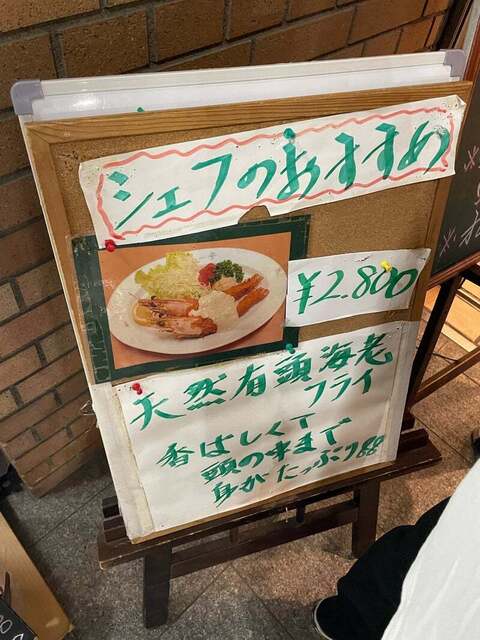 シェフのおすすめ
¥2.800
天然有頭海老
フライ
香ばしくて
頭の味まで
身がたっぷり